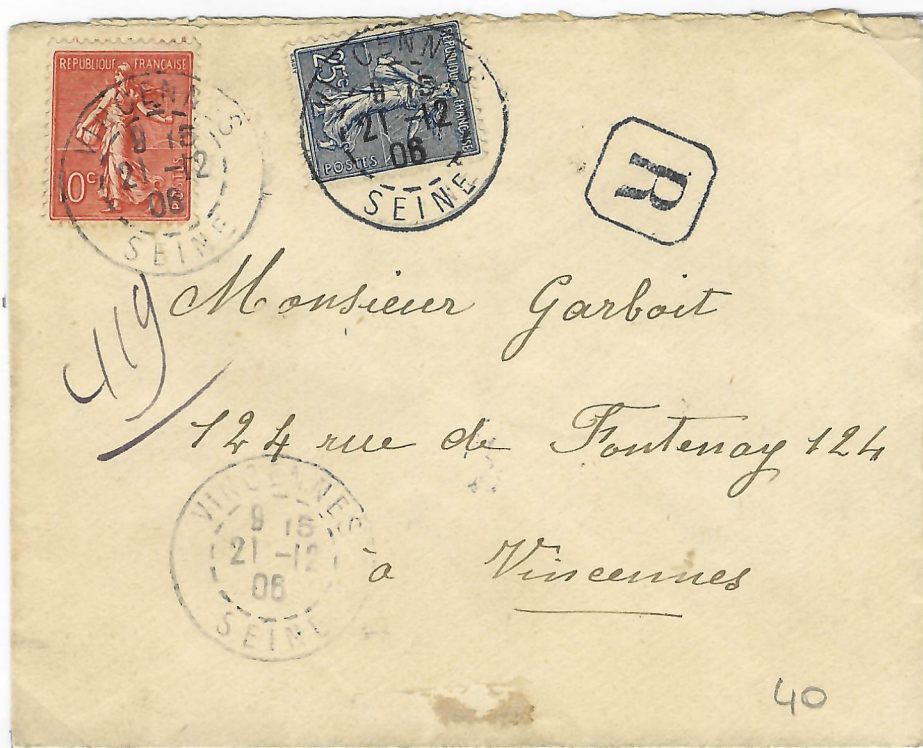 REPUBLIQUE FRANÇAISE
0c
POSTES
VINCENNES
9 15
21 -12
06
SEINE
REPUBLIQUE FRANÇAISE
25c
POSTES
VINCENNES
9 15
21 -12
06
SEINE
R
419
Monsieur Garboit
124 rue de Fontenay 124
à Vincennes
VINCENNES
9 15
21 -12
06
SEINE
40